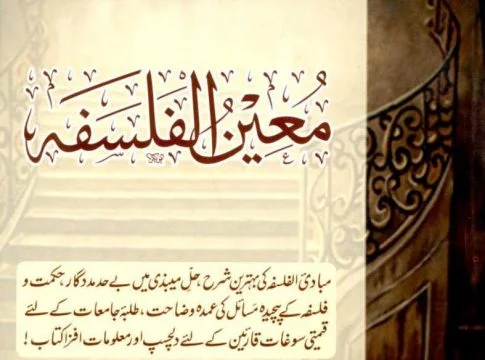 مُعِیْنُ الْفَلْسَفَہ
مبادئ الفلسفہ کی بہترین شرح، حلِّ میبذی میں بے حد مددگار، حکمت و
فلسفہ کے پیچیدہ مسائل کی عمدہ وضاحت، طلبۂ جامعات کے لئے
قیمتی سوغات قارئین کے لئے دلچسپ اور معلومات افزا کتاب !